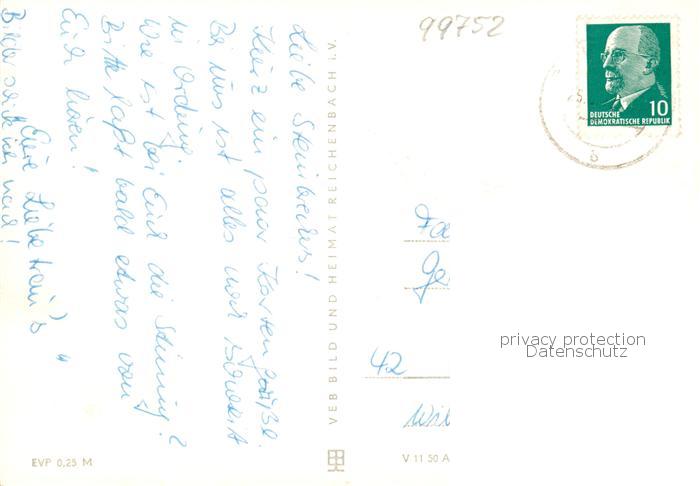 99752
DEUTSCHE
DEMOKRATISCHE REPUBLIK
10
Liebe
Kurz ein paar Karten grüße.
Bei uns ist alles noch soweit
in Ordnung.
Wie ist bei Euch die Stimmung?
Bitte laßt bald etwas von
Euch hören!
Eure
Bilder schick ich noch!
VEB BILD UND HEIMAT REICHENBACH i.V.
Fa
Ge
42
privacy protection
Datenschutz
EVP 0,25 M
V 11 50 A